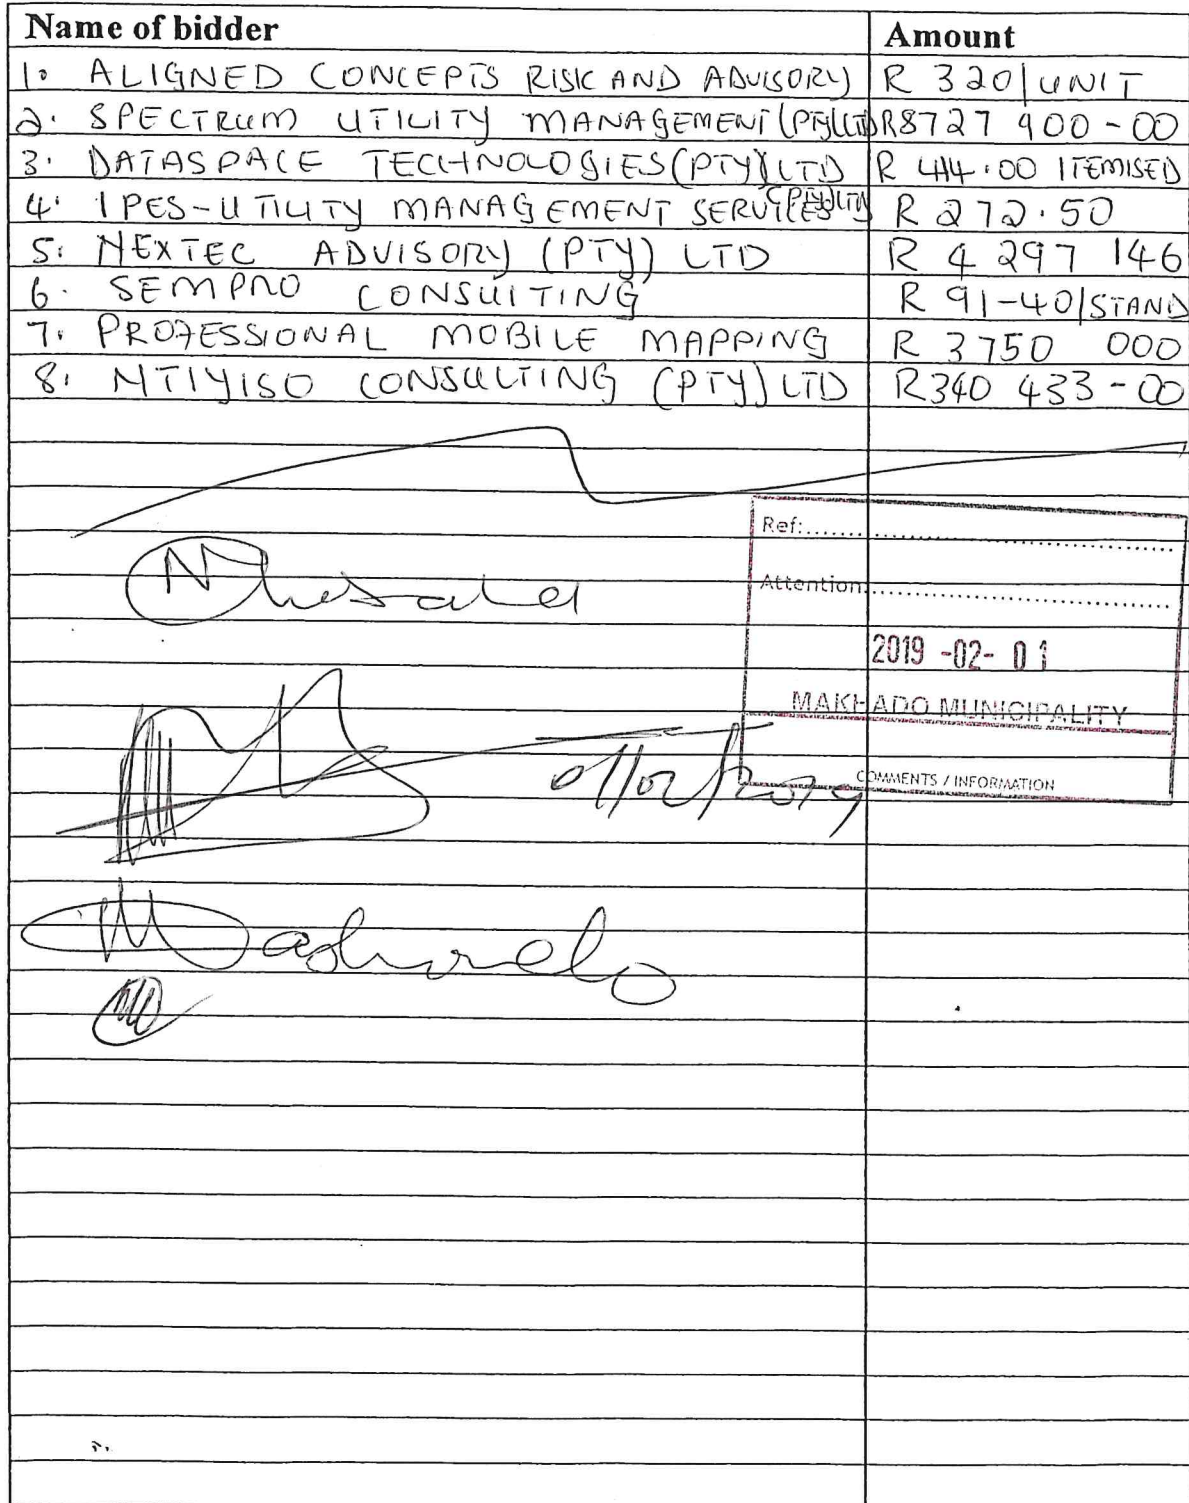 Name of bidder Amount
1. ALIGNED CONCEPTS RISK AND ADVISORY R 320/UNIT
2. SPECTRUM UTILITY MANAGEMENT (PTY)LTD R8727 900-00
3. DATASPACE TECHNOLOGIES (PTY) LTD R 414.00 ITEMISED
4. IPES-UTILITY MANAGEMENT SERVICES (PTY)LTD R 272.50
5. NEXTEC ADVISORY (PTY) LTD R 4 297 146
6. SEMPRO CONSULTING R 91-40/STAND
7. PROFESSIONAL MOBILE MAPPING R 3750 000
8. MTIYISO CONSULTING (PTY) LTD R340 433-00
Ref:
Attention:
2019 -02- 01
MAKHADO MUNICIPALITY
01/02/2019
COMMENTS / INFORMATION